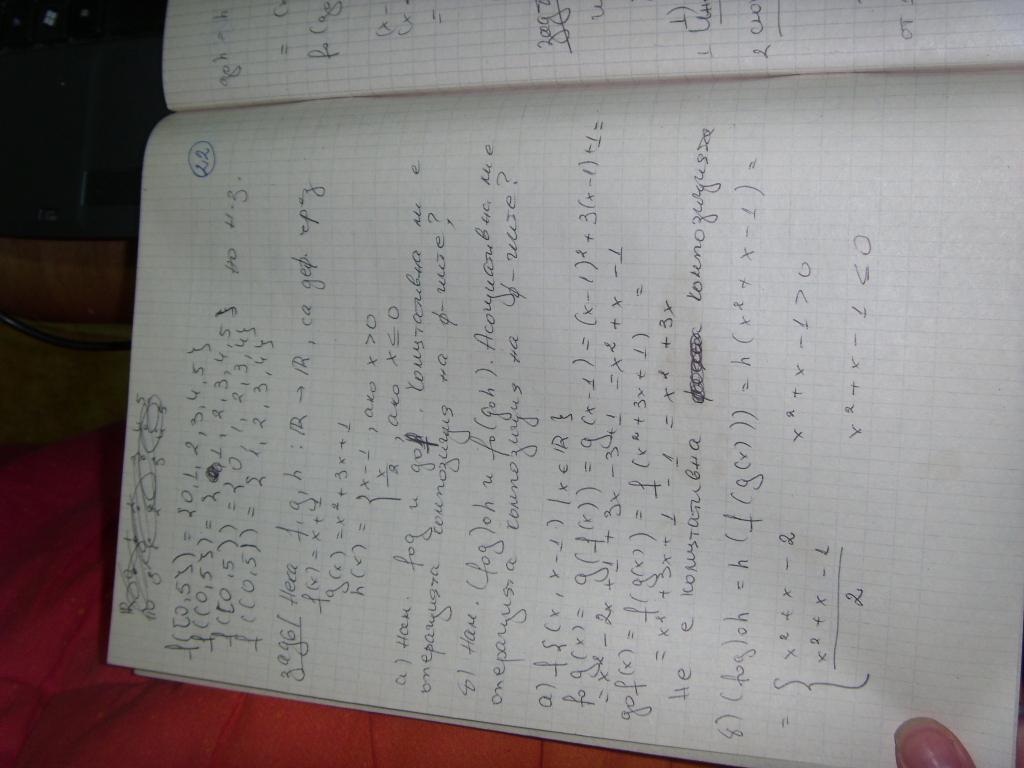 22
f([0,5]) = {0, 1, 2, 3, 4, 5}
f((0,5]) = {1, 2, 3, 4, 5} но н.з.
f([0,5)) = {0, 1, 2, 3, 4}
f((0,5)) = {1, 2, 3, 4}
Зад6/ Нека f, g, h : ℝ → ℝ, са деф чрез
f(x) = x + 1
g(x) = x² + 3x + 1
h(x) = { x - 1, ако x > 0
x/2, ако x ≤ 0
а) Нам. fog и gof. Комутативна ли е
операцията композиция на ф-ите?
б) Нам. (fog)oh и fo(goh). Асоциативна ли е
операцията композиция на ф-иите?
а) f {(x, x - 1) | x ∈ ℝ}
fog(x) = g(f(x)) = g(x-1) = (x-1)² + 3(x-1) + 1 =
= x² - 2x + 1 + 3x - 3 + 1 = x² + x - 1
gof(x) = f(g(x)) = f(x² + 3x + 1) =
= x² + 3x + 1 - 1 = x² + 3x
Не е комутативна композицията
б) (fog)oh = h(f(g(x))) = h(x² + x - 1) =
= { x² + x - 2 x² + x - 1 > 0
x² + x - 1 / 2 x² + x - 1 ≤ 0
goh = h
fo(g